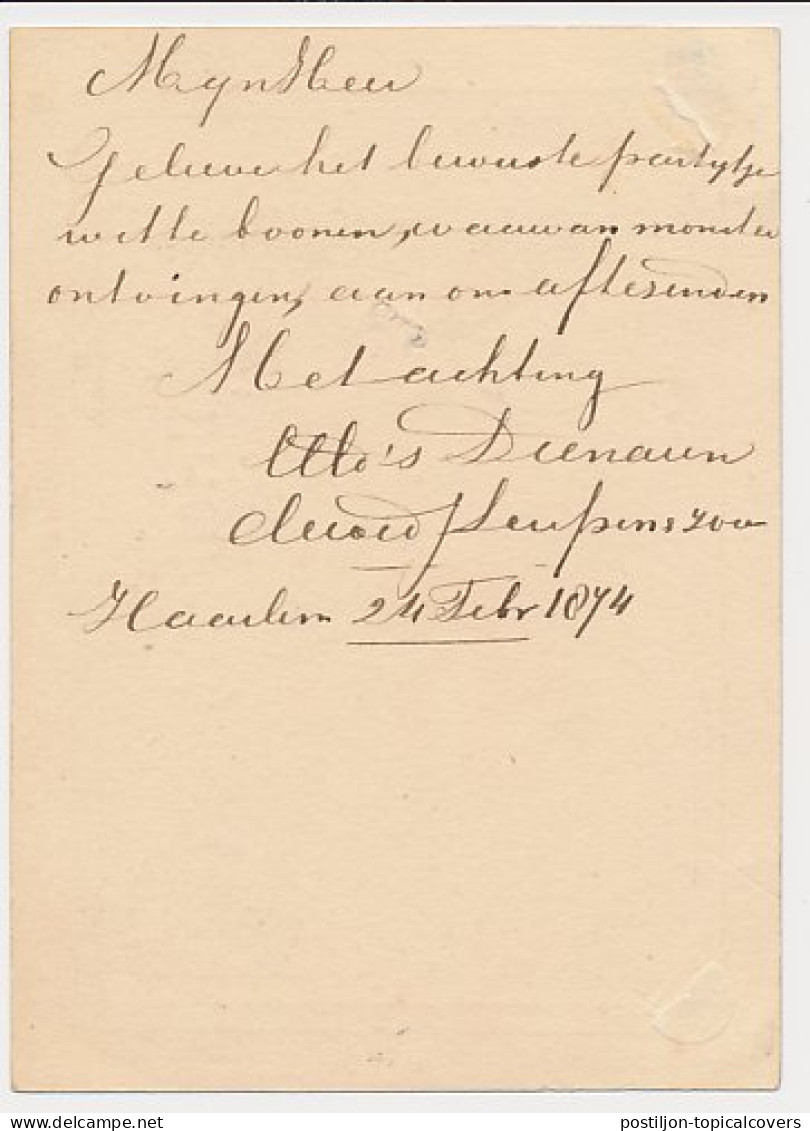 MynHeer
Gelieve het bewuste partytje
witte boonen, waarvan monster
ontvingen, aan ons aftezenden
Met achting
UEd's Dienaren
zoon
Haarlem 24 Febr 1874
postiljon-topicalcovers